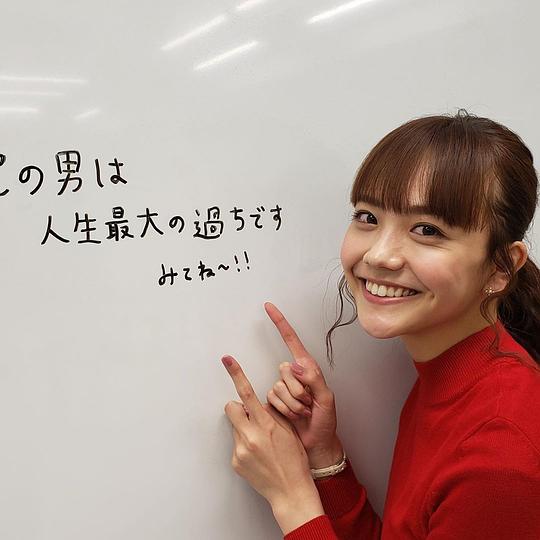 の男は
人生最大の過ちです
みてね〜!!